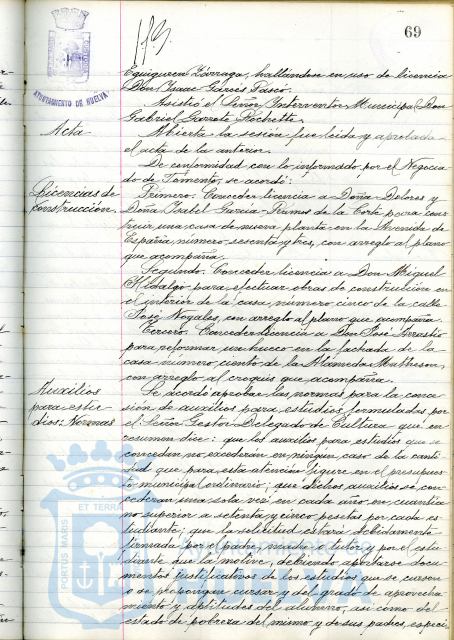 69
173.
AYUNTAMIENTO DE HUELVA
Eguiguren Lárraga, hallándose en uso de licencia
Don Isaac Garcés Tasco.
Asistió el Señor Interventor Municipal Don
Gabriel Garrote Rochette.
Acta
Abierta la sesión fue leída y aprobada
el acta de la anterior.
De conformidad con lo informado por el Negocia
do de Fomento, se acordó:
Licencias de
construcción.
Primero. Conceder licencia a Doña Dolores y
Doña Isabel García-Ramos de la Corte para cons
truir una casa de nueva planta en la Avenida de
España número sesenta y tres, con arreglo al plano
que acompaña.
Segundo. Conceder licencia a Don Miguel
Hidalgo para efectuar obras de construcción en
el interior de la casa número cinco de la calle
José Nogales, con arreglo al plano que acompaña.
Tercero. Conceder licencia a Don José Arrastio
para reformar un hueco en la fachada de la
casa número ciento de la Alameda Matheson,
con arreglo al croquis que acompaña.
Auxilios
para estu
dios: Normas
Se acordó aprobar las normas para la conce
sión de auxilios para estudios formuladas por
el Señor Gestor Delegado de Cultura que en
resumen dice: que los auxilios para estudios que se
concedan no excederán en ningún caso de la canti
dad que para esta atención figure en el presupues
to municipal ordinario; que dichos auxilios se con
cederán una sola vez en cada año en cuantía
no superior a setenta y cinco pesetas por cada es
tudiante; que la solicitud estará debidamente
firmada por el padre, madre o tutor y por el estu
diante que la motive, debiendo aportarse docu
mentos justificativos de los estudios que se cursen
o se propongan cursar y del grado de aprovecha
miento y aptitudes del alumno, así como del
estado de pobreza del mimo y de sus padres, especi
PORTUS MARIS
ET TERRÆ